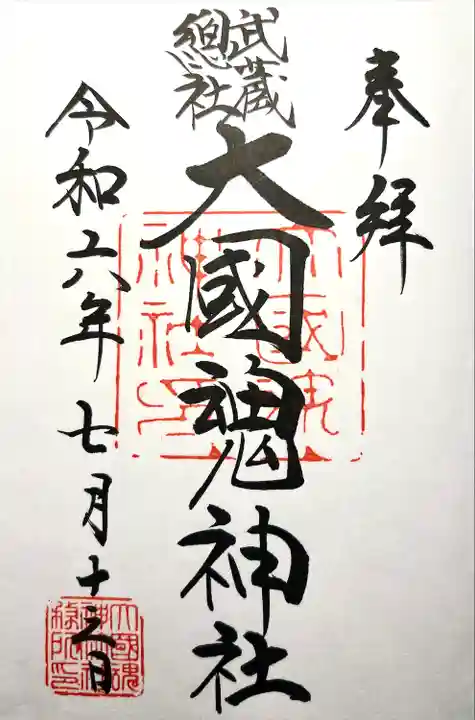 奉拝
武蔵
總社
大國魂神社
令和六年七月十三日
大國魂
神社印
大國魂
神社社
務所印